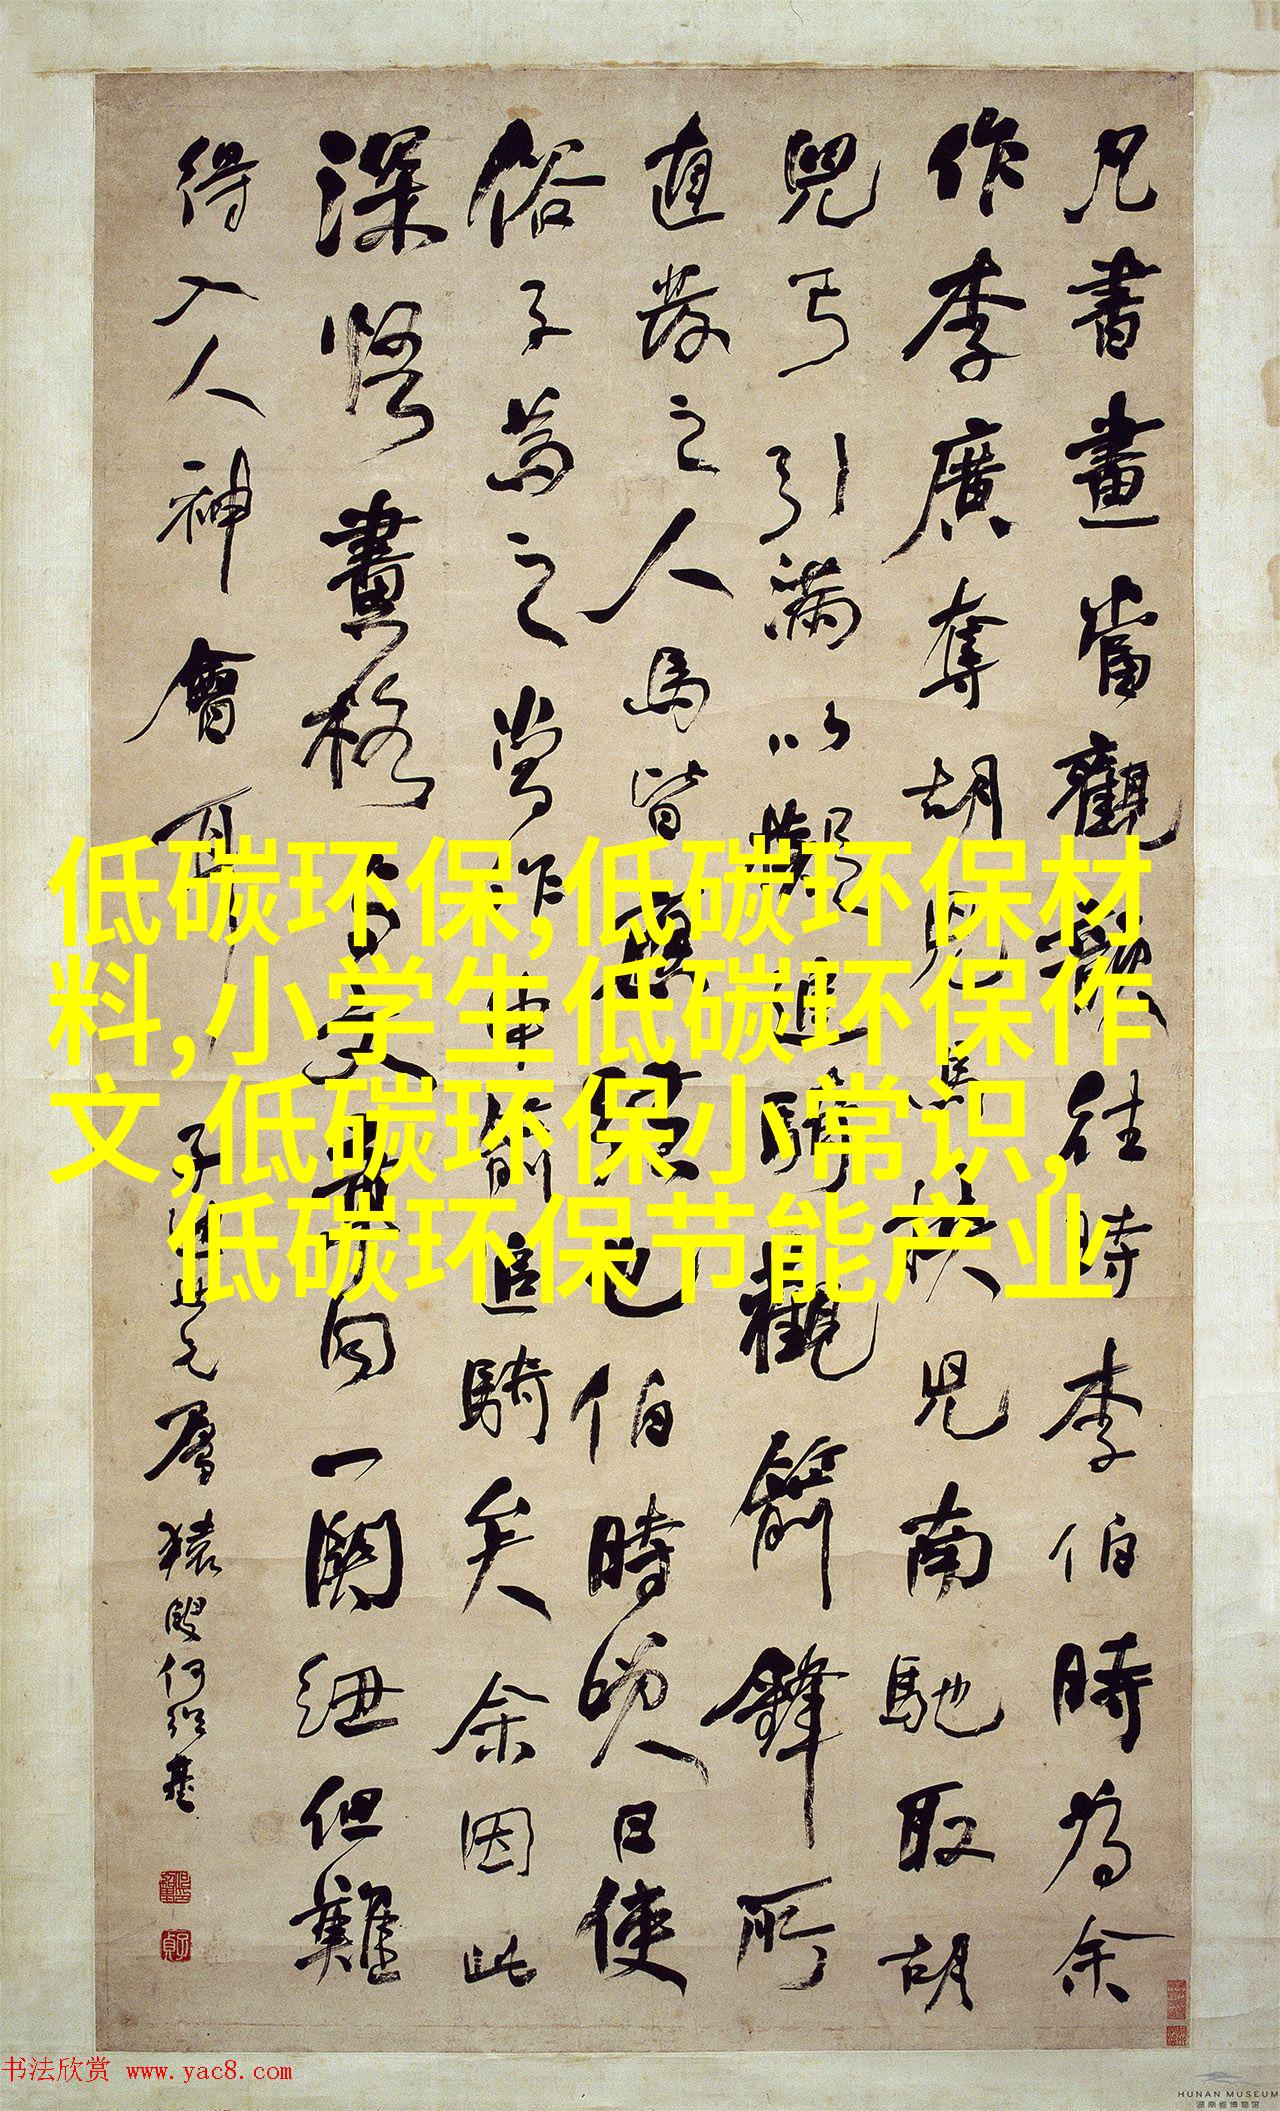 凡書畫當觀韻往時李伯時為余
作李廣奪胡兒馬挾兒南馳取胡
兒弓引滿以擬追騎觀箭鋒所
直發之人馬皆應弦也伯時笑曰使
俗子為之當作中箭追騎矣余因此
深悟畫格与文章同一關紐但難
得入人神會耳
猿叟何紹基
低碳环保,低碳环保材
料,小学生低碳环保作
文,低碳环保小常识,
低碳环保节能产业
书法欣赏 www.yac8.com
HUNAN MUSEUM
湖南省博物馆